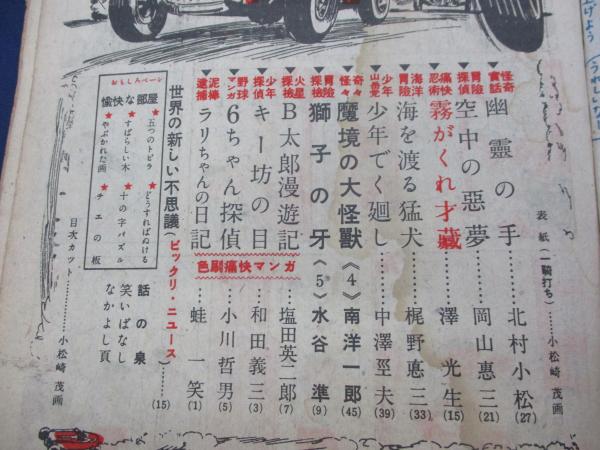 表紙(一騎打ち)……小松崎 茂画
▼怪奇實話 幽靈の手……北村小松(27)
▼冒險探偵 空中の惡夢……岡山惠三(21)
▼痛快忍術 霧がくれ才藏……澤 光生(15)
▼海洋冒險 海を渡る猛犬……梶野悳三(33)
▼少年山岳 少年でく廻し……中澤巠夫(39)
▼奇々怪々 魔境の大怪獸〈4〉南洋一郎(45)
▼冒險探檢 獅子の牙〈5〉水谷 準(9)
▼火星探檢 B太郎漫遊記……塩田英二郎(7)
▼少年探偵 キー坊の目……和田義三(3)
▼野球マンガ 6ちゃん探偵……小川哲男(5)
▼泥棒逮捕 ラリちゃんの日記……蛙 一笑(1)
色刷痛快マンガ
世界の新しい不思議(ビックリ・ニュース)……(15)
おたしみページ
愉快な部屋
★五つのトビラ
★すばらしい木
★やぶかれた画
★どうすればぬける
★十の字パズル
★チエの板
話の泉
笑いばなし
なかよし頁
目次カット……小松崎 茂画